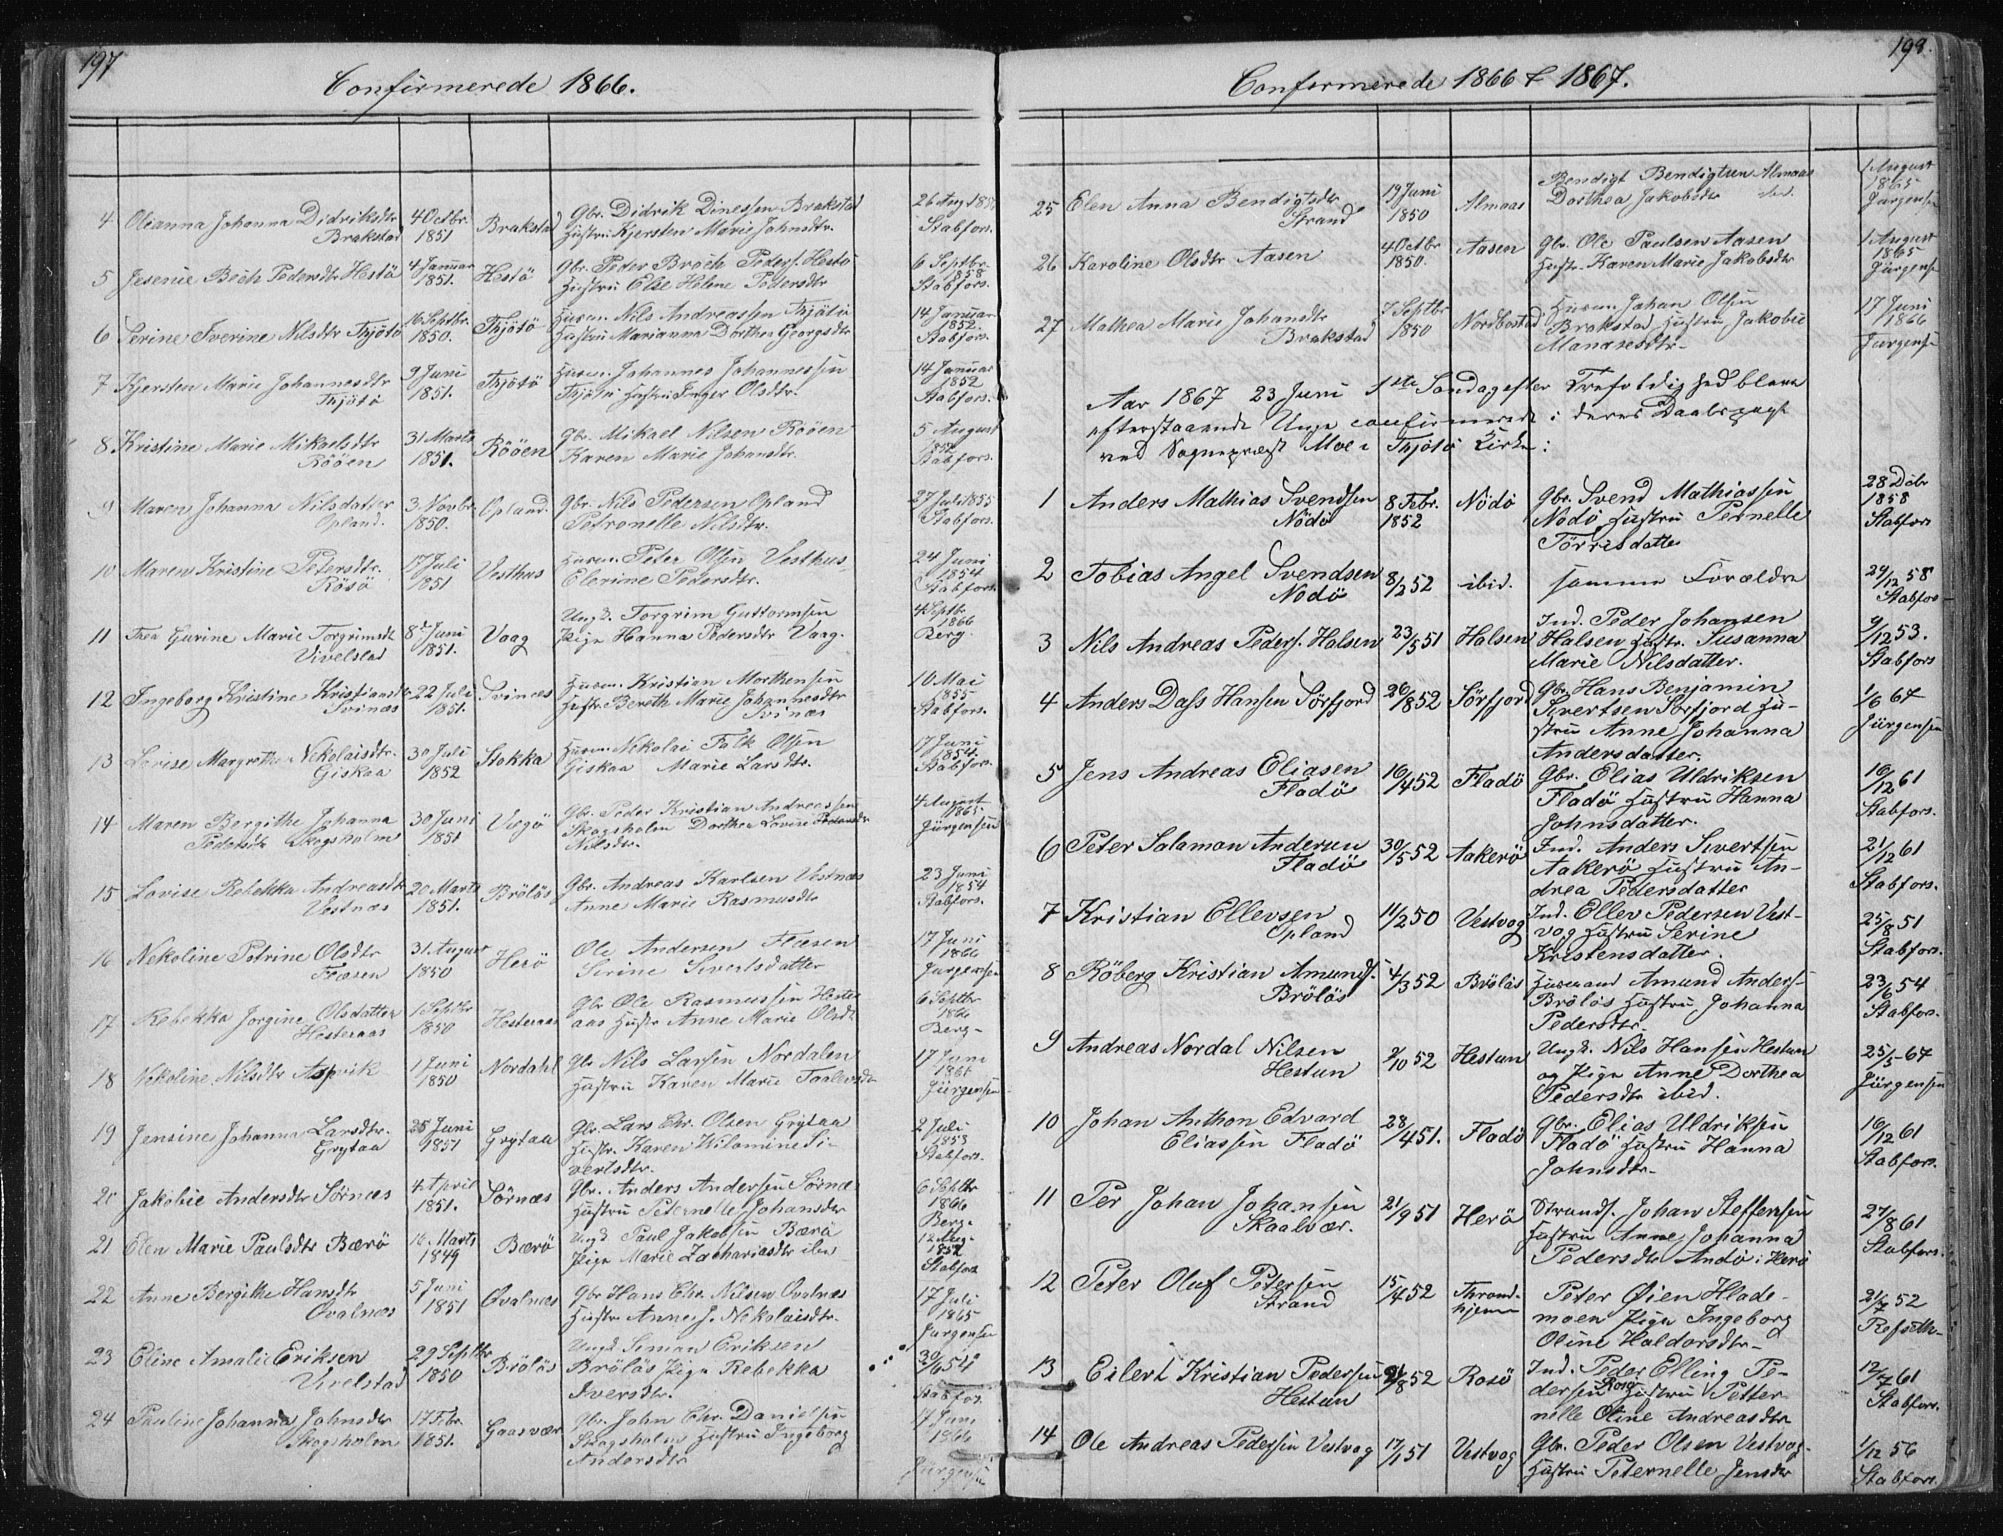 197
Confirmerede 1866.
4 Oleanna Johanna Didriksdtr 4 Octbr. Brakstad Gbr. Didrik Dinessen Brakstad 26 Aug 185
Brakstad 1851 Hustru Kjersten Marie Johnsdtr. Stabfors.
5 Jesenie Bech Pedersdtr Hestö 4 Januar Hestö Gbr. Peder Broch Peders. Hestö 6 Septbr.
1851. Hustru Else Helene Pedersdtr 1858
Stabfors.
6 Serine Iverine Nilsdtr Thjötö 16 Septbr. Thjötö Husm. Nils Andreassen Thjötö 14 Januar
1850. Hustru Marianna Dorthea Georgsdtr 1852.
Stabfors.
7 Kjersten Marie Johannesdtr 9 Juni Thjötö Husm. Johannes Johannessen 14 Januar
Thjötö 1851. Thjötö Hustru Inger Olsdtr. 1852
Stabfors.
8. Kristine Marie Mikaelsdtr 31 Marts Rööen Gbr. Mikael Nilsen Rööen 5 August
Rööen 1851. Karen Marie Johansdtr. 1852
Stabfors.
9 Maren Johanna Nilsdatter 3 Novbr. Opland. Gbr. Nils Pedersen Opland 27 Juli 1855
Opland. 1850. Petronelle Nilsdtr. Stabfors.
10 Maren Kristine Petersdtr. 17 Juli Vesthus Husm. Peter Olsen Vesthus 24 Juni
Rösö 1851 Elerine Pedersdtr. 1854
Stabfors.
11 Thea Gurine Marie Torgrimsdt 8de Juni Vaag Ungk. Torgrim Guttormsen 4 Septbr
Vivelstad 1851. Pige Hanna Pedersdtr Vaag. 1866
Berg.
12 Ingeborg Kristine Kristiansdtr 22 Juli Svinæs Husm. Kristian Morthensen 10 Mai
Svinæs 1851. Hustr. Bereth Marie Johannesdtr 1855
Svinæs Stabfors.
13 Lovise Margrethe Nikolaisdtr. 30 Juli Stokka Husm. Nikolai Falk Olsen 17 Juni
Giskaa 1852 Giskaa Marie Larsdtr. 1854.
Stabfors.
14 Maren Bergithe Johanna 30 Juni Vægö Gbr. Peder Kristian Andreassen 4 August
Pedersdtr Skogsholm 1851 Skogsholm Dorthea Lovise 1865.
Nilsdtr. Jürgensen
15 Lovise Rebekka Andreasdtr 20 Marts Brölös Gbr. Andreas Karlsen Vestnæs 23 Juni
Vestnæs 1851. Anne Marie Rasmusdtr 1854
Stabfors.
16 Nekoline Petrine Olsdtr 31. August Herö Ole Andersen Flæsen 17 Juni
Flæsen 1850 Serine Sivertsdatter 1866
Jurgensen
17 Rebekka Jorgine Olsdatter 1 Septbr Hesteraas Gbr Ole Rasmussen Hester 6 Septbr
Hesteraas 1850 aas Hustr Anne Marie Olsdt 1866
Berg-
18 Nekoline Nilsdtr Aspvik 1 Juni Nordahl Gbr Nils Larsen Nordalen 17 Juni
1850 Hustru Karen Marie 186
Jürgensen
19 Jensine Johanna Larsdtr. 25 Juni Grytaa Gbr. Lars Chr. Olsen Grytaa 2 Juli
Grytaa 1851 Hustr. Karen Wilomine Si- 1853
vertsdtr. Stabfors.
20 Jakobie Andersdtr Sörnæs 4 April Sörnæs Gbr. Anders Andersen Sörnæ 6 Septbr
1851. Hustru Peternelle Johansdtr 1866
Berg-
21 Elen Marie Paulsdtr Bærö 16 Marts Bærö Ungk Paul Jakobsen Bærö 12 Aug-
1849 Pige Marie Zachariasdtr ibm 1852
Stabfors
22 Anne Bergithe Hansdtr 5 Juni Ovalnæs Gbr Hans Chr. Nilsen Ovalnæs 17 Juli
Ovalnæs 1851 Hustru Anne J. Nekolaisdtr. 1865
Jurgensen
23 Eline Amalie Eriksen 29 Septbr Brölös Ungk Simon Eriksen 30/6 54
Vivelstad 1850 Brölös Pige Rebekka
Iversdtr. Stabfors.
24 Pauline Johanna Johnsdtr 17 Febr. Gaasvær Gbr. John Chr. Danielsen 17 Juni
Skogsholm 1851. Skogsholm Hustru Ingeborg 1866
Andersdtr Jürgensen
198.
Confirmerede 1866 & 1867.
25 Elen Anna Bendigtsdtr 19 Juni Almaas Bendigt Bendigtsen Almaas 1 August
Strand 1850 Dorthea Jakobsdtr ibid. 1865
Jurgensen
26 Karoline Olsdtr Aasen 4 Octbr Aasen Gbr. Ole Paulsen Aasen 1 August
1850. Hustr. Karen Marie Jakobsdtr 1865
Jürgense
27 Mathea Marie Johansdtr 7 Septbr Nordbostad Husm Johan Olsen 17 Juni
Brakstad 1850 Brakstad Hustru Jakobie 1866
Manasesdtr- Jurgense
Aar 1867 23 Juni 1ste Søndag efter Trefoldighed bleve
efterstaaende Unge confirmerede i deres Daabspagt
ved Sognepræst Moe i Thjötö Kirke:
1 Anders Mathias Svendsen 8 Febr. Nödö Gbr. Svend Mathiassen 28 Dcbr
Nödö 1852 Nödö Hustru Pernelle 1858
Törrisdatter Stabfors
2 Tobias Angel Svendsen 8/2 52 ibid. samme Forældre 29/12 58
Nodö Stabfors
3 Nils Andreas Peders. Halsen 23/5 51 Halsen Ind. Peder Johansen 9/12 53.
Halsen Hustr. Susanna
Marie Nilsdatter. Stabfors
4 Anders Dass Hansen Sörfjord 26/8 52 Sörfjord Gbr. Hans Benjamin 1/6 67
Sivertsen Sörfjord Hu- Jürgensen
stru Anne Johanna
Andersdatter.
5 Jens Andreas Eliasen 16/4 52 Fladö Gbr. Elias Uldriksen 16/12 61
Fladö Fladö Hustru Hanna Stabfors.
Johnsdatter.
6 Peter Salamon Andersen 30/5 52 Aakerö Ind. Anders Sivertsen 21/12 61
Fladö Aakerö Hustru An- Stabfors.
drea Pedersdatter
7 Kristian Ellevsen 11/2 50 Vestvog Ind. Ellev Pedersen Vest- 25/8 51
Opland vog Hustru Serine Stabfors.
Kristensdatter.
8 Röberg Kristian Amunds. 4/3 52 Brölös Husmand Amund Anders- 23/6 54
Brölös Brölös Hustru Johanna Stabfors.
Pedersdtr.
9 Andreas Nordal Nilsen 2/10 52 Hestun Ungk. Nils Hansen Hestun 25/5 67
Hestun og Pige Anne Dorthea Jürgensen
Pedersdtr ibid.
10 Johan Anthon Edvard 28/4 51. Fladö Gbr. Elias Uldriksen 16/12 61
Eliassen Fladö Fladö Hustru Hanna Stabfors.
Johnsdtr-
11 Per Johan Johansen 21/9 51 Herö Strands. Johan Steffensen 27/8 61
Skaalvær. Hustru Anne Johanna Stabfors.
Pedersdtr Andö i Herö
12 Peter Oluf Petersen 15/4 52 Thrond- Peter Øien Hlade- 21/7 52
Strand hjem moen Pige Ingeborg Refseth-
Oline Haldorsdtr-
13 Eilert Kristian Pedersen 21/8 52 Rosö Ind. Peder Elling Pe- 12/7 61
Hestun dersen Rosö Hustru Petter Stabfors.
nelle Oline Andreasdtr
14 Ole Andreas Pedersen Vestvog 17/1 51 Vestvog Gbr. Peder Olsen Vestvog- 1/12 56
Hustru Peternelle Jensdtr Stabfors.